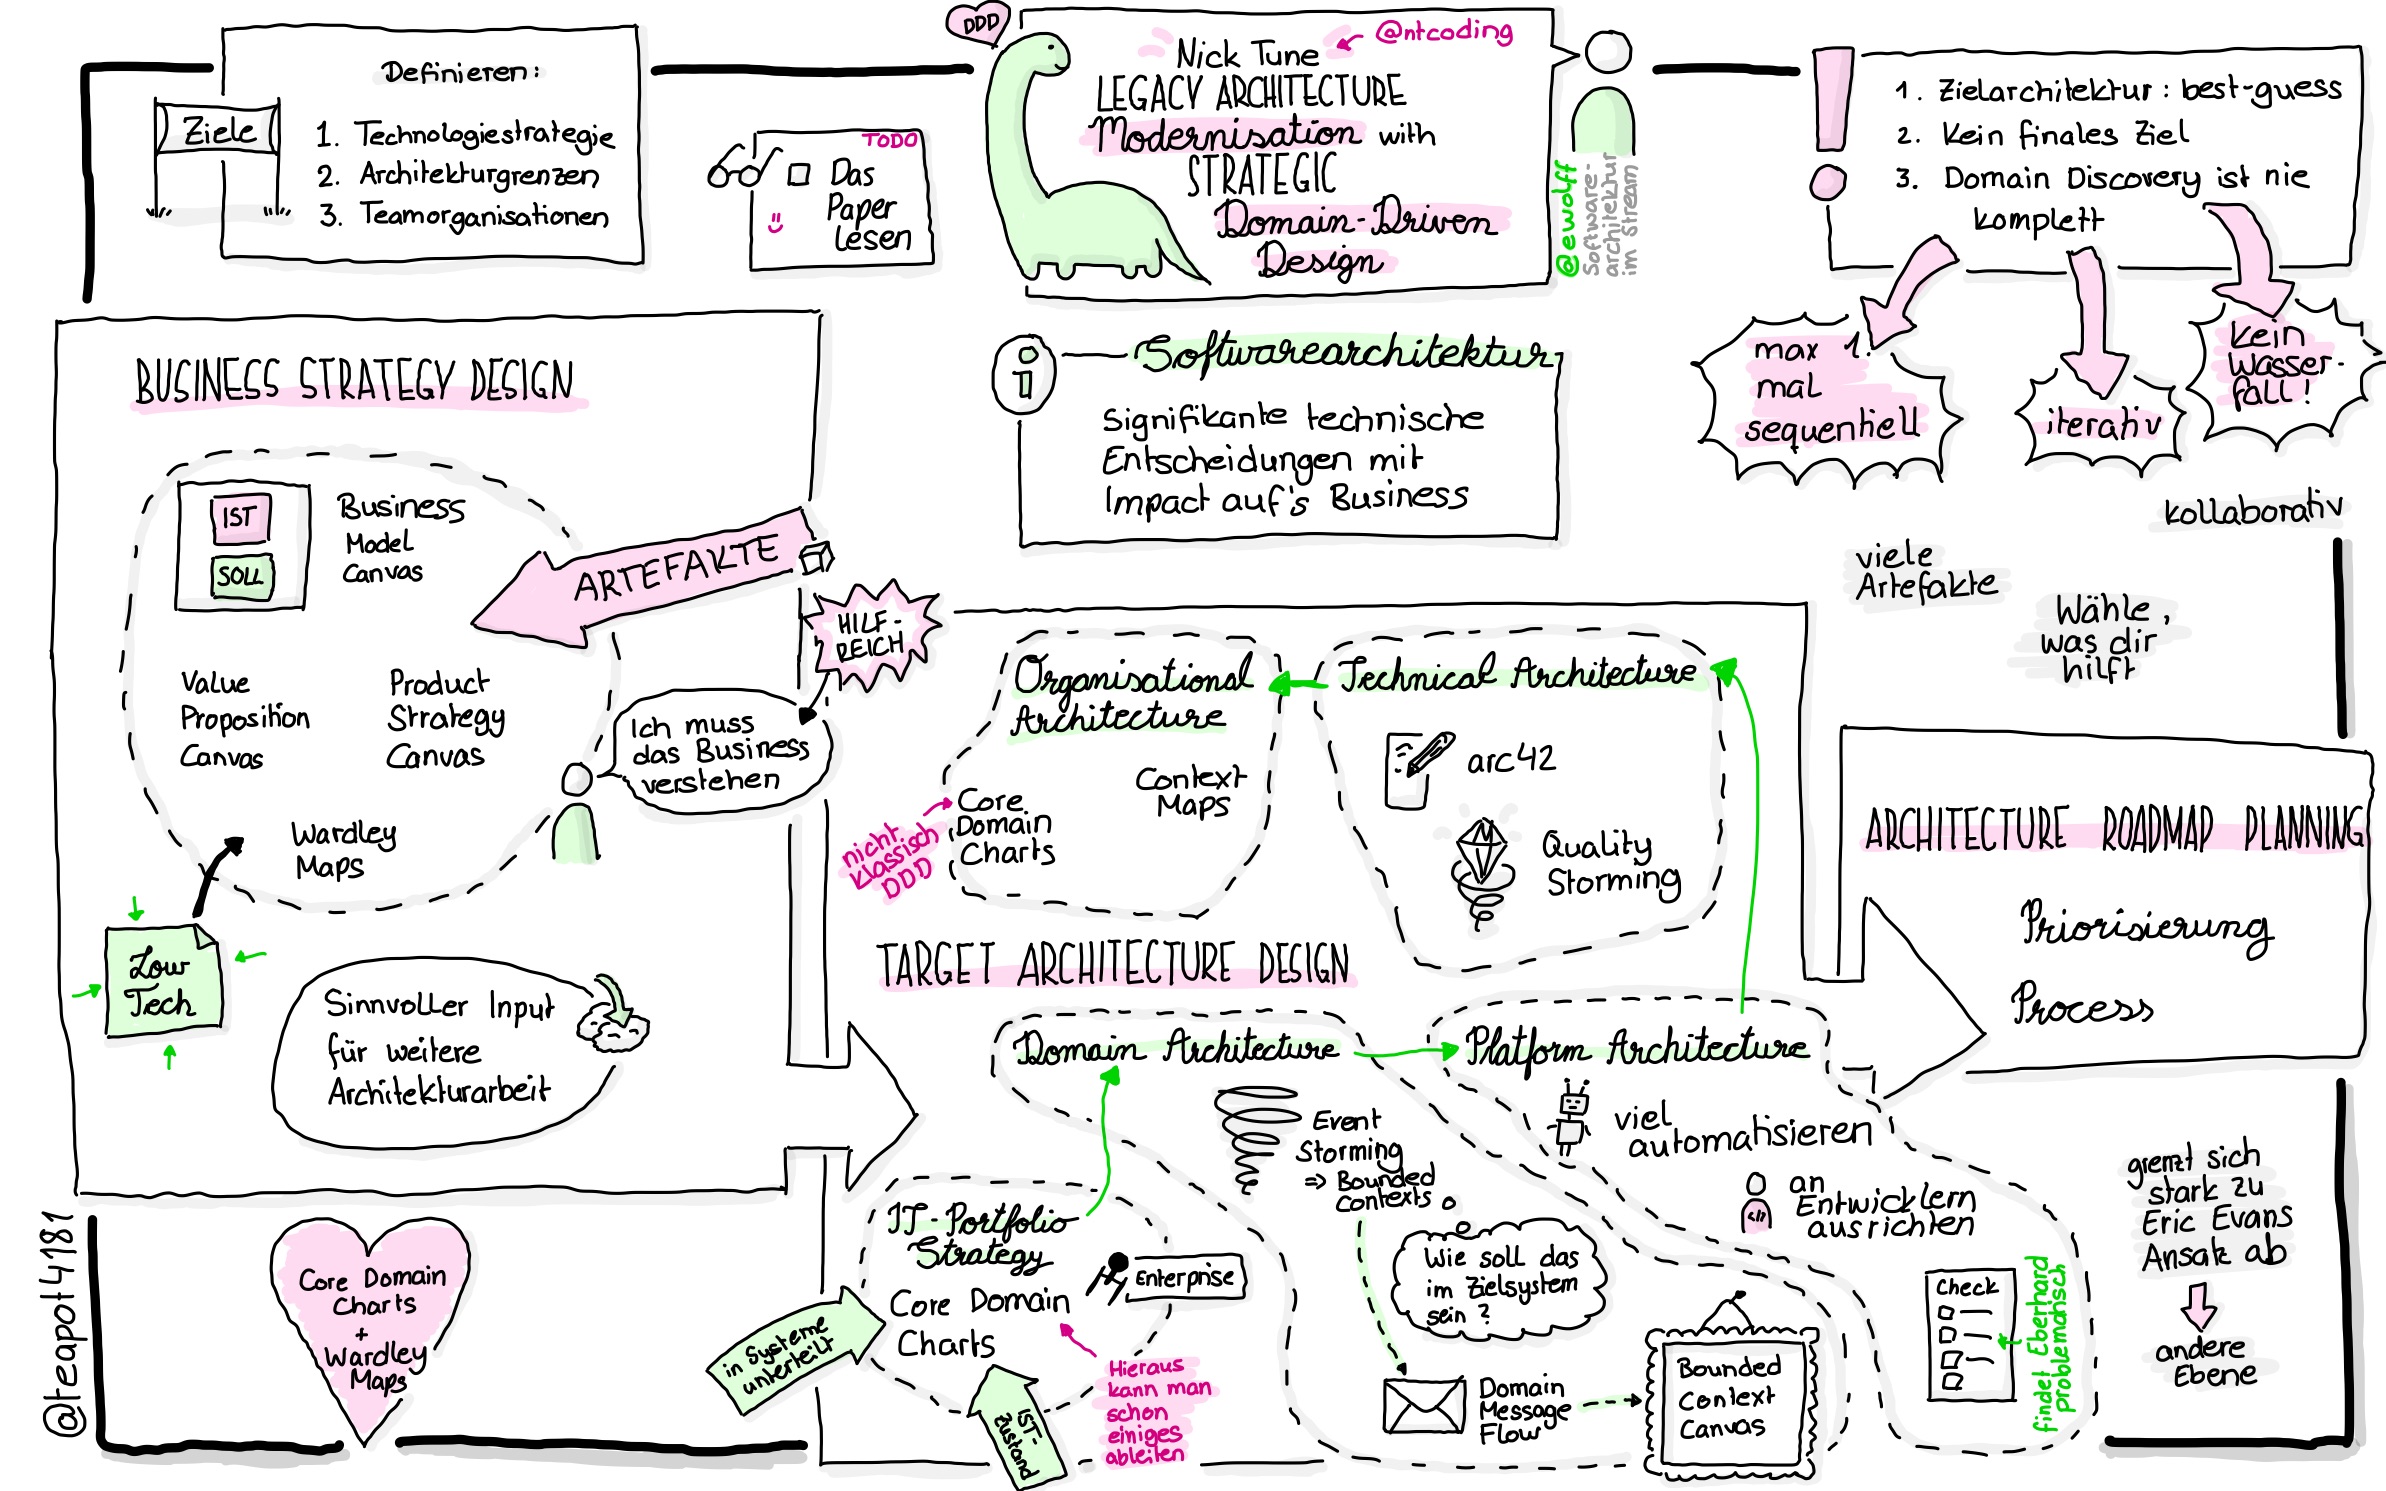 Definieren:
Ziele
1. Technologiestrategie
2. Architekturgrenzen
3. Teamorganisationen
TODO
Das
Paper
lesen
DDD
@ntcoding
Nick Tune
LEGACY ARCHITECTURE
Modernisation with
STRATEGIC
Domain-Driven
Design
@ewolff
Software-
architektur
im Stream
1. Zielarchitektur: best-guess
2. Kein finales Ziel
3. Domain Discovery ist nie
komplett
max 1.
mal
sequentiell
iterativ
kein
Wasser-
fall!
i
Softwarearchitektur
Signifikante technische
Entscheidungen mit
Impact auf's Business
kollaborativ
viele
Artefakte
Wähle,
was dir
hilft
BUSINESS STRATEGY DESIGN
IST
SOLL
Business
Model
Canvas
ARTEFAKTE
HILF-
REICH
Value
Proposition
Canvas
Product
Strategy
Canvas
Ich muss
das Business
verstehen
Wardley
Maps
Low
Tech
Sinnvoller Input
für weitere
Architekturarbeit
Organisational
Architecture
Core
Domain
Charts
Context
Maps
nicht
klassisch
DDD
Technical Architecture
arc42
Quality
Storming
TARGET ARCHITECTURE DESIGN
Domain Architecture
Event
Storming
⇒ Bounded
Contexts
Wie soll das
im Zielsystem
sein?
Domain
Message
Flow
Bounded
Context
Canvas
Platform Architecture
viel
automatisieren
</>
an
Entwicklern
ausrichten
Check
findet Eberhard
problematisch
IT-Portfolio
Strategy
Enterprise
Core Domain
Charts
in Systeme
unterteilt
IST-
Zustand
Hieraus
kann man
schon
einiges
ableiten
ARCHITECTURE ROADMAP PLANNING
Priorisierung
Process
grenzt sich
stark zu
Eric Evans
Ansatz ab
andere
Ebene
Core Domain
Charts
+
Wardley
Maps
@teapot4181